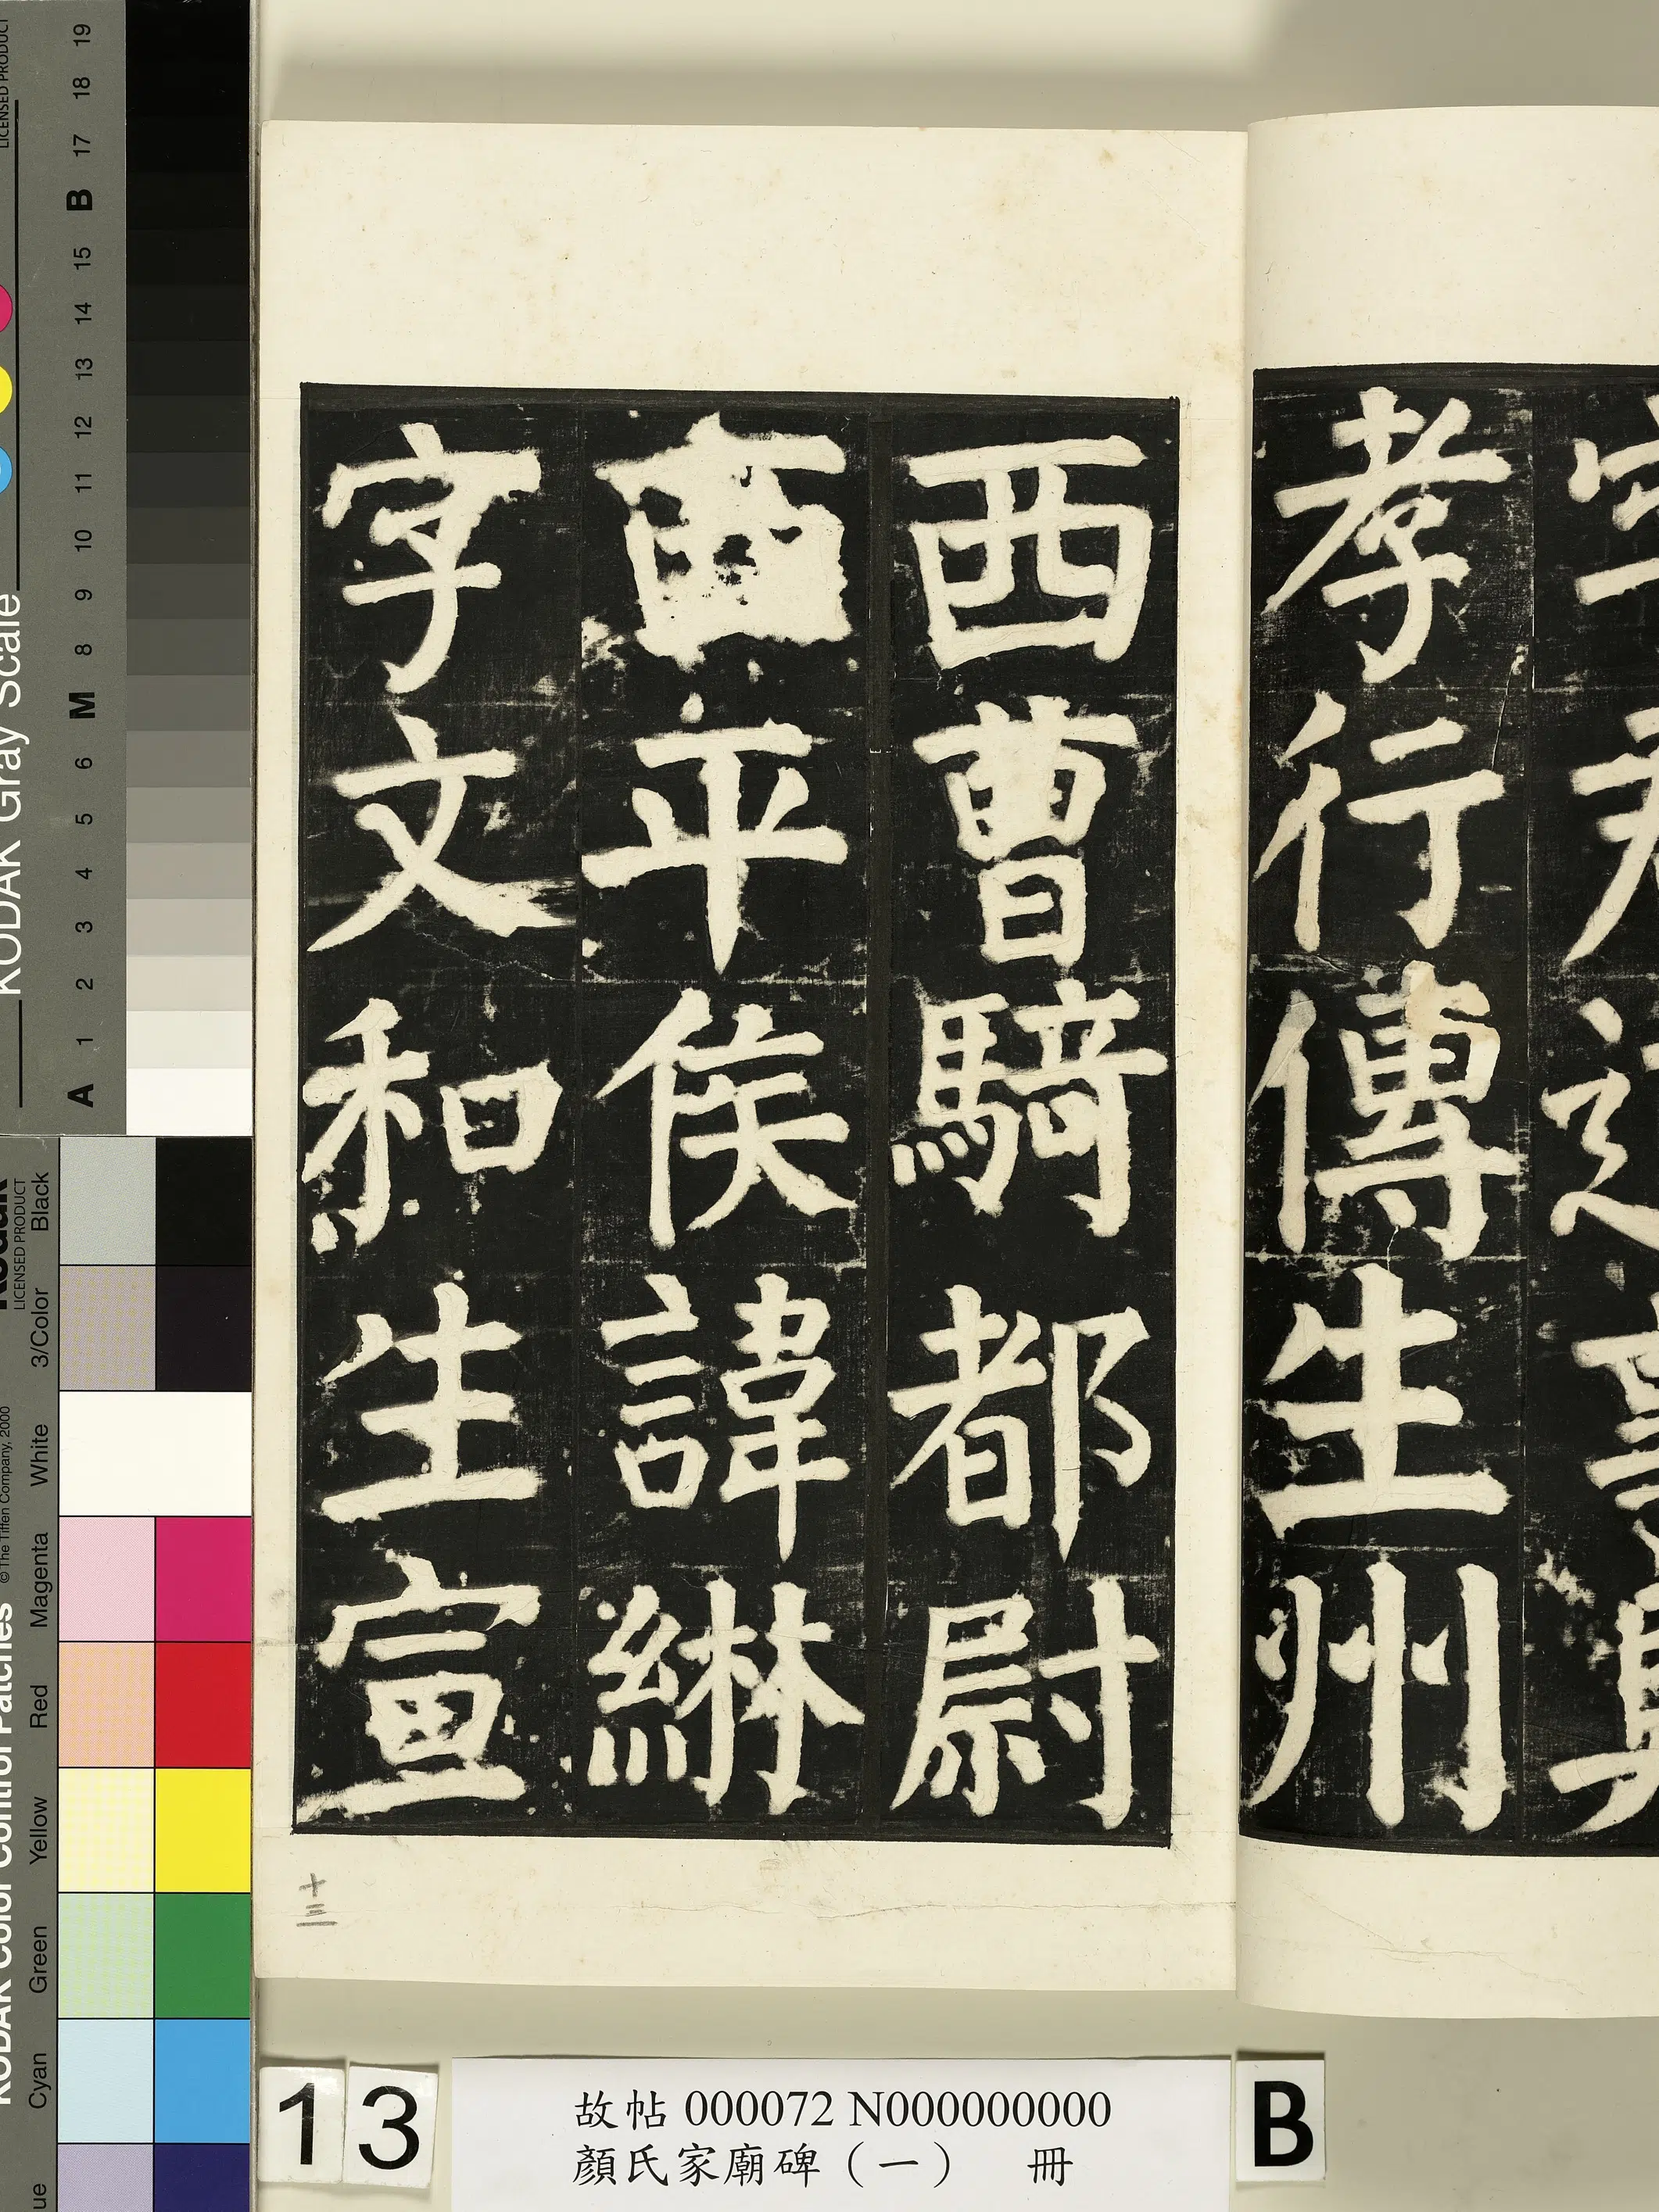 孝行傳生州
西曹騎都尉
西平侯諱綝
字文和生宣
十三
13
故帖 000072 N000000000
顏氏家廟碑（一） 冊
B
KODAK Gray Scale
LICENSED PRODUCT
A 1 2 3 4 5 6 M 8 9 10 11 12 13 14 15 B 17 18 19
KODAK Color Control Patches
© The Tiffen Company, 2000
Kodak
LICENSED PRODUCT
Cyan Green Yellow Red Magenta White 3/Color Black